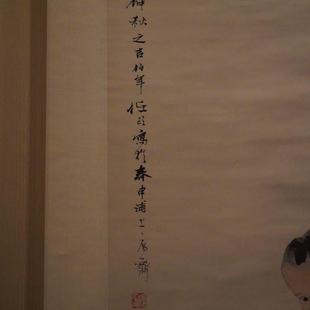 仲秋之吉伯年任頤寫於春申浦上寓齋